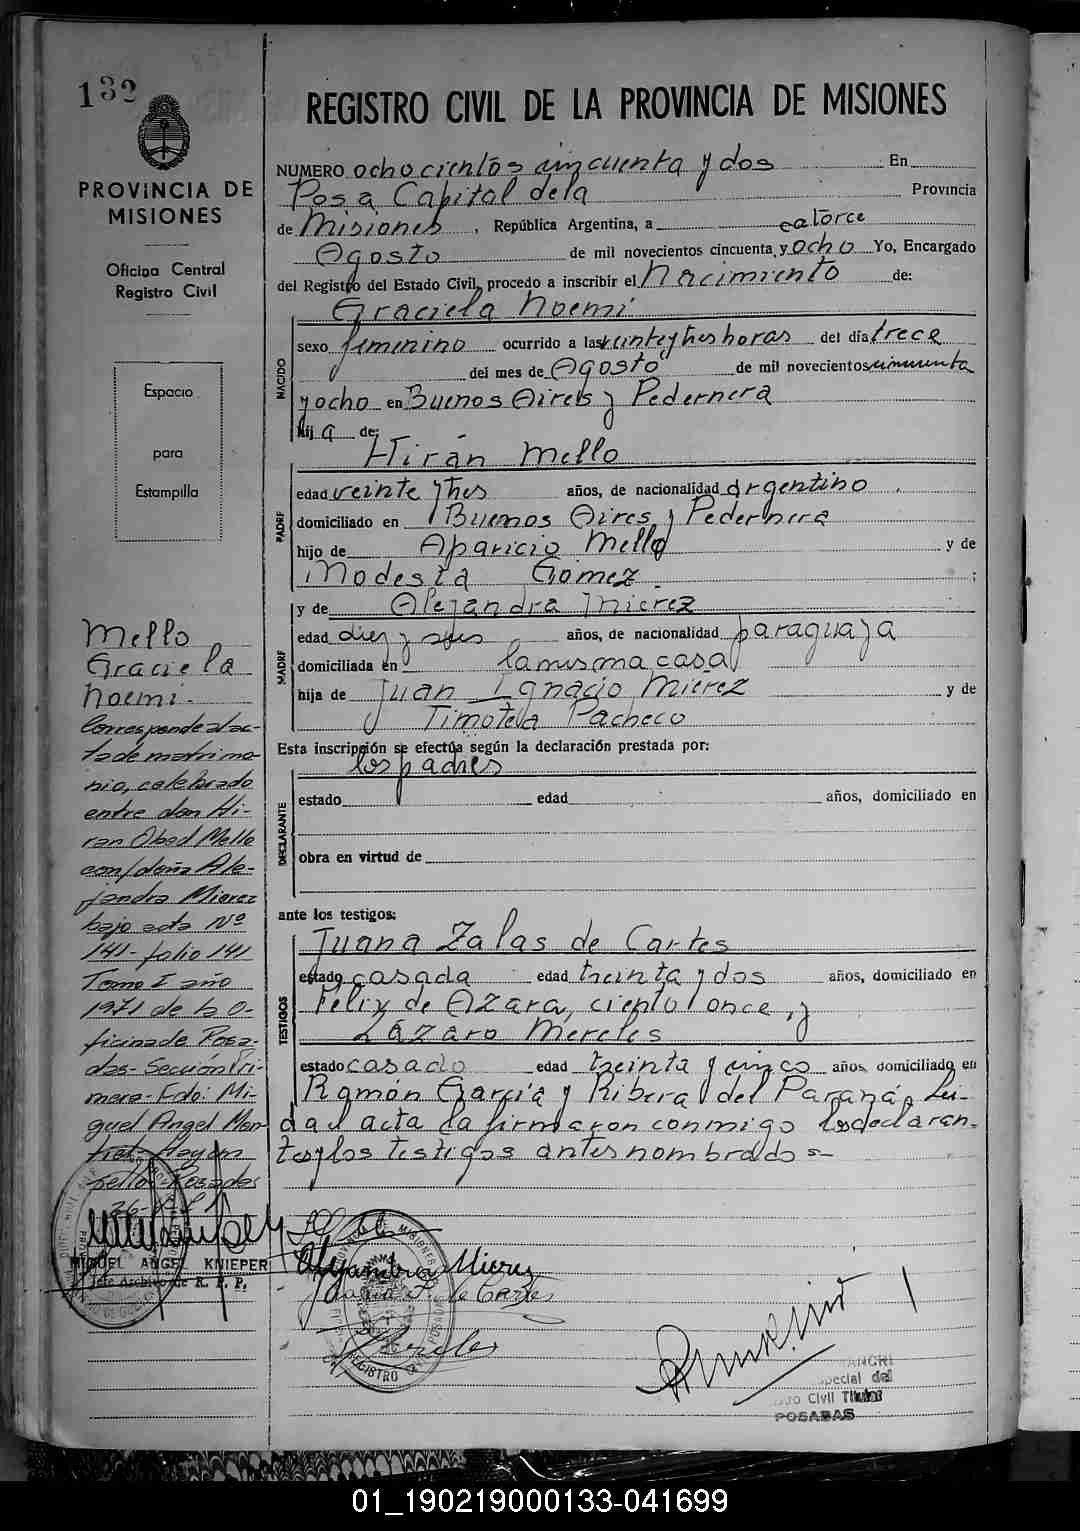 132
PROVINCIA DE
MISIONES
Oficina Central
Registro Civil
Espacio
para
Estampilla
Mello
Graciela
Noemi.
Corresponde al ac-
ta de matrimo-
nio, celebrado
entre don Hi-
ran Obed Mello
con doña Ale-
jandra Mierez
bajo acta Nº
141- folio 141
Tomo I año
1971 de la O-
ficina de Posa-
das- Sección Pri-
mera- Fdo: Mi-
guel Angel
Posadas
MIGUEL ANGEL KNIEPER
Jefe Archivo de R. P. P.
REGISTRO CIVIL DE LA PROVINCIA DE MISIONES
NUMERO ochocientos cincuenta y dos En
Posa Capital dela Provincia
de Misiones, República Argentina, a catorce
Agosto de mil novecientos cincuenta y ocho Yo, Encargado
del Registro del Estado Civil, procedo a inscribir el Nacimiento de:
Graciela Noemi
NACIDO
sexo femenino ocurrido a las veinte y tres horas del día trece
del mes de Agosto de mil novecientos cincuenta
y ocho en Buenos Aires y Pedernera
hij a de:
Hirán Mello
PADRE
edad veinte y tres años, de nacionalidad argentino.
domiciliado en Buenos Aires y Pedernera
hijo de Aparicio Mello y de
Modesta Gomez. ;
y de Alejandra Mierez
MADRE
edad diez y seis años, de nacionalidad paraguaya
domiciliada en la misma casa
hija de Juan Ignacio Mierez y de
Timotea Pacheco
Esta inscripción se efectúa según la declaración prestada por:
los padres
DECLARANTE
estado edad años, domiciliado en
obra en virtud de
ante los testigos:
Juana Zalas de Cartes
TESTIGOS
estado casada edad treinta y dos años, domiciliado en
Felix de Azara, ciento once, y
Lázaro Mereles
estado casado edad treinta y cinco años, domiciliado en
Ramón García y Ribera del Paraná. Lei-
da el acta la firmaron conmigo los declaran-
tes y los testigos antes nombrados=
Alejandra Mierez
Juana Z. de Cartes
Mereles
REGISTRO
Especial del
Civil Titular
POSADAS
01_190219000133-041699